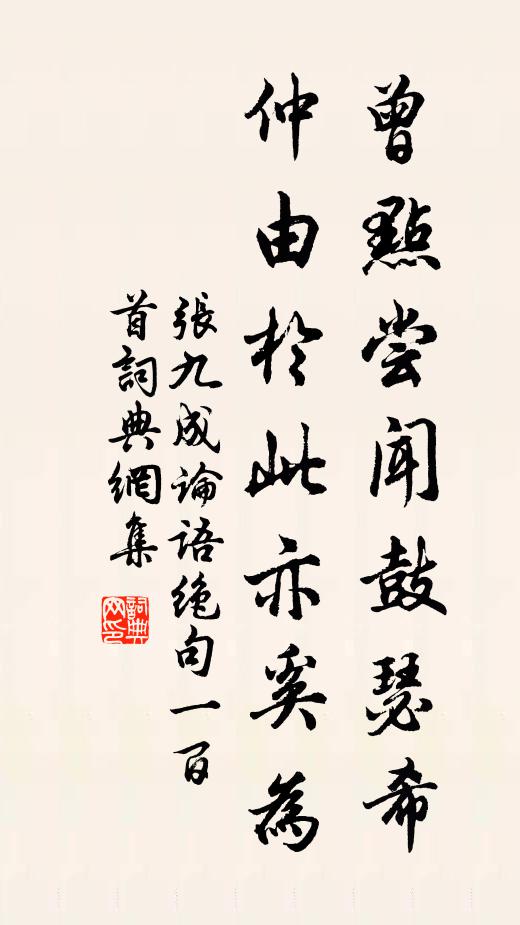 曾點尝闻鼓瑟希
仲由於此亦奚為
張九成论语绝句一百
首詞典網集
詞典
网印